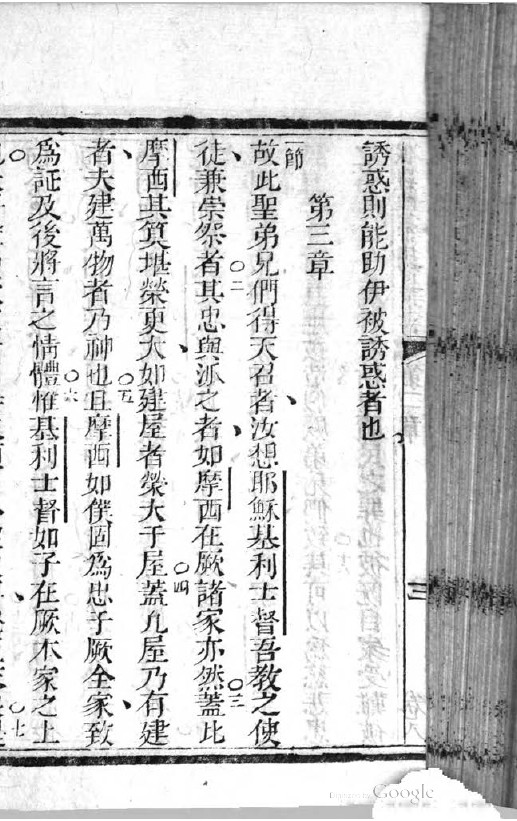 誘惑則能助伊被誘惑者也
第三章
節
故此聖弟兄們得天召者汝想耶穌基利士督吾教之使
徒兼崇祭者○二其忠與派之者如摩西在厥諸家亦然○三蓋此
摩西其算堪榮更大如建屋者榮大于屋○四蓋凡屋乃有建
者夫建萬物者乃神也○五且摩西如僕固為忠于厥全家致
為証及後將言之情體○六惟基利士督如子在厥本家之上○七
Google